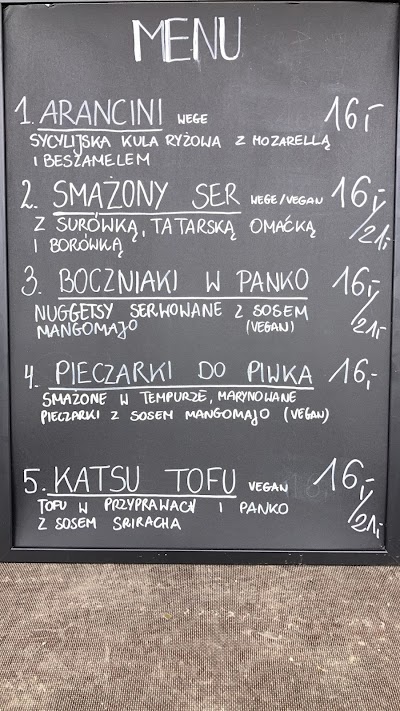 MENU
1. ARANCINI WEGE 16,-
SYCYLIJSKA KULA RYŻOWA Z MOZARELLĄ
I BESZAMELEM
2. SMAŻONY SER WEGE/VEGAN 16,-
Z SURÓWKĄ, TATARSKĄ OMAĆKĄ /21,-
I BORÓWKĄ
3. BOCZNIAKI W PANKO 16,-
NUGGETSY SERWOWANE Z SOSEM
MANGOMAJO (VEGAN) /21,-
4. PIECZARKI DO PIWKA 16,-
SMAŻONE W TEMPURZE, MARYNOWANE
PIECZARKI Z SOSEM MANGOMAJO (VEGAN)
5. KATSU TOFU VEGAN 16,-
TOFU W PRZYPRAWACH I PANKO /21,-
Z SOSEM SRIRACHA